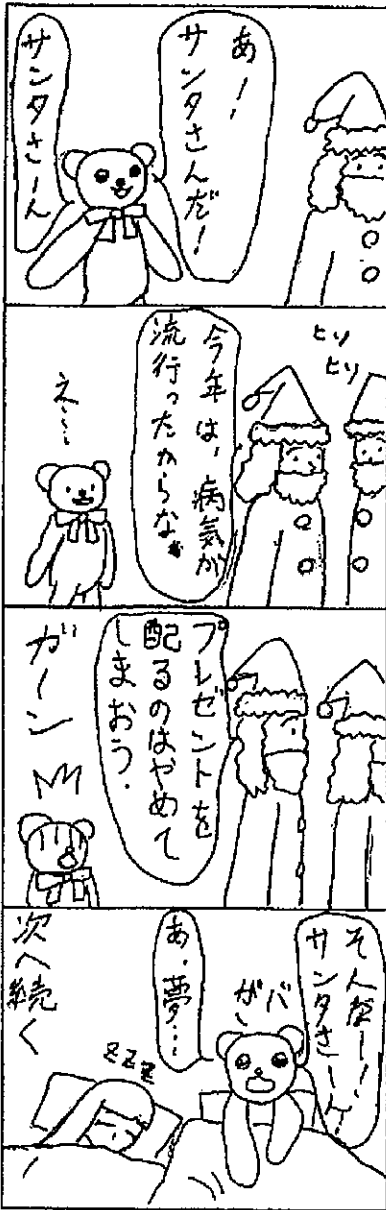 あ！
サンタさんだ！
サンタさーん
ヒソ
ヒソ
今年は、病気が
流行ったからなぁ
え…
プレゼントを
配るのはやめて
しまおう.
ガーン
そんなー！
サンタさーん
ガバ
あ、夢…
zzz
次へ続く